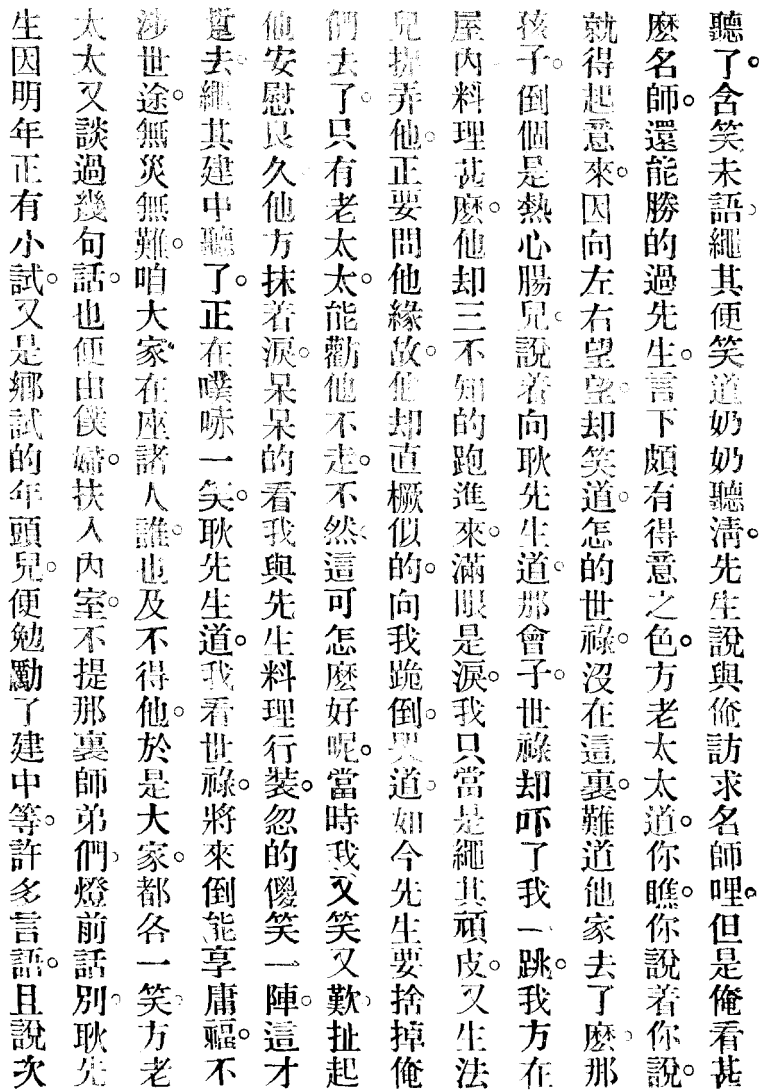 聽了。含笑未語。繩其便笑道奶奶聽淸。先生說與俺訪求名師哩。但是俺看甚
麽名師。還能勝的過先生。言下頗有得意之色。方老太太道。你瞧。你說着你說。
就得起意來。因向左右望望。却笑道。怎的世祿。沒在這裏。難道他家去了麽。那
孩子。倒個是熱心腸兒。說着向耿先生道。那會子。世祿却吓了我一跳。我方在
屋內料理甚麽。他却三不知的跑進來。滿眼是淚。我只當是繩其頑皮。又生法
兒撮弄他。正要問他緣故。他却直橛似的。向我跪倒。哭道。如今先生要捨掉俺
們去了。只有老太太。能勸他不走。不然。這可怎麽好呢。當時我又笑又歎。扯起
他安慰良久他方抹着淚。呆呆的看我與先生料理行裝。忽的傻笑一陣。這才
踅去。繩其建中聽了。正在噗哧一笑。耿先生道。我看世祿。將來倒能享庸福。不
涉世途。無災無難。咱大家。在座諸人誰。也及不得他。於是大家。都各一笑。方老
太太又談過幾句話。也便由僕婦。扶入內室。不提那裏師弟們。燈前話別。耿先
生因明年正有小試。又是鄉試的年頭兒。便勉勵了建中等。許多言語。且說次